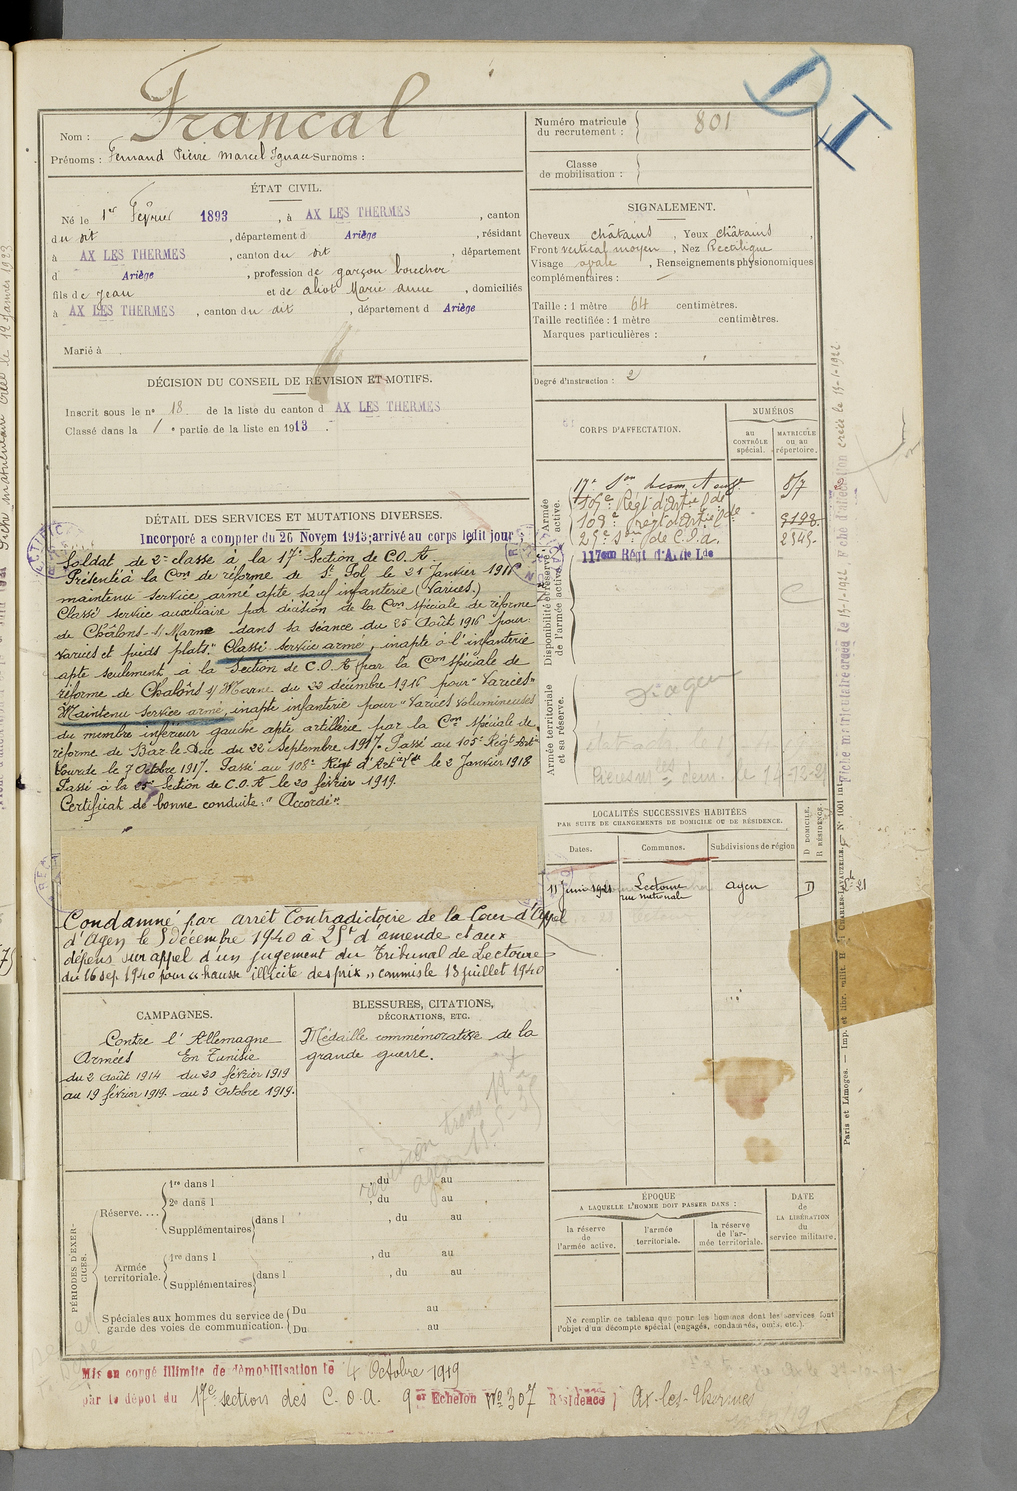 Nom : Francal
Prénoms : Fernand Pierre Marcel Ignace Surnoms :
Numéro matricule du recrutement : 801
Classe de mobilisation :
ÉTAT CIVIL.
Né le 1er Février 1893, à AX LES THERMES, canton
du dit, département d Ariège, résidant
à AX LES THERMES, canton du dit, département
d Ariège, profession de garçon boucher
fils de Jean et de Marie Anne, domiciliés
à AX LES THERMES, canton du dit, département d Ariège
Marié à
SIGNALEMENT.
Cheveux châtains, Yeux châtains,
Front vertical moyen, Nez Rectiligne
Visage ovale, Renseignements physionomiques
complémentaires : —
Taille : 1 mètre 64 centimètres.
Taille rectifiée : 1 mètre centimètres.
Marques particulières :
Degré d'instruction : 2
DÉCISION DU CONSEIL DE RÉVISION ET MOTIFS.
Inscrit sous le no 18 de la liste du canton d AX LES THERMES
Classé dans la 1e partie de la liste en 1913.
CORPS D'AFFECTATION.
NUMÉROS
au CONTRÔLE spécial.
MATRICULE ou au répertoire.
Armée active.
105e Régt d'Artie Lde
25e Son de C.O.A. 2545
117eme Régt d'Artie Lde
Disponibilité et réserve de l'armée active.
Armée territoriale et sa réserve.
DÉTAIL DES SERVICES ET MUTATIONS DIVERSES.
Incorporé a compter du 26 Novem 1913; arrivé au corps ledit jour
Soldat de 2e classe à la 17e Section de C.O.A
Présenté à la Con de réforme de St Pol le 21 Janvier 1916
maintenu service armé apte sauf infanterie (Varices.)
Classé service auxiliaire par décision de la Con spéciale de réforme
de Châlons-s/Marne dans sa séance du 25 Août 1916 pour:
varices et pieds plats." Classé service armé, inapte à l'infanterie
apte seulement, à la Section de C.O.A par la Con spéciale de
réforme de Chalons s/Marne du 22 décembre 1916 pour "Varices"
Maintenu service armé inapte infanterie pour "Varices volumineuses
du membre inférieur gauche apte artillerie par la Con spéciale de
réforme de Bar le Duc du 22 Septembre 1917. Passé au 105e Régt Artie
Lourde le 7 Octobre 1917. Passé au 108e Régt d'Artie Lde le 2 Janvier 1918
Passé à la 25e Section de C.O.A le 20 février 1919.
Certificat de bonne conduite: "Accordé".
Condamné par arrêt Contradictoire de la Cour d'Appel
d'Agen le 5 décembre 1940 à 25f d'amende et aux
dépens sur appel d'un jugement du Tribunal de Lectoure
du 16 sep. 1940 pour "hausse illicite des prix" commis le 13 juillet 1940
LOCALITÉS SUCCESSIVES HABITÉES
PAR SUITE DE CHANGEMENTS DE DOMICILE OU DE RÉSIDENCE.
Dates. Communes. Subdivisions de région D DOMICILE. R RÉSIDENCE.
11 Juin 1921 Lectoure rue nationale Agen D
CAMPAGNES.
Contre l'Allemagne
Armées En Tunisie
du 2 Août 1914 du 20 février 1919
au 19 février 1919. au 3 Octobre 1919.
BLESSURES, CITATIONS, DÉCORATIONS, ETC.
Médaille commémorative de la
grande guerre.
PÉRIODES D'EXERCICES.
Réserve....
1re dans l , du au
2e dans l , du au
Supplémentaires dans l , du au
Armée territoriale.
1re dans l , du au
Supplémentaires dans l , du au
Spéciales aux hommes du service de garde des voies de communication.
Du au
Du au
ÉPOQUE
A LAQUELLE L'HOMME DOIT PASSER DANS :
la réserve de l'armée active.
l'armée territoriale.
la réserve de l'armée territoriale.
DATE de LA LIBÉRATION du service militaire.
Ne remplir ce tableau que pour les hommes dont les services font
l'objet d'un décompte spécial (engagés, condamnés, omis, etc.).
Mis en congé illimité de démobilisation le 4 Octobre 1919
par le dépôt du 17e section des C.O.A. 9er Echelon No 307 Résidence Ax-les-Thermes
Fiche matriculaire créée le 13-1-1922. Fiche d'affectation créée le 13-1-1922